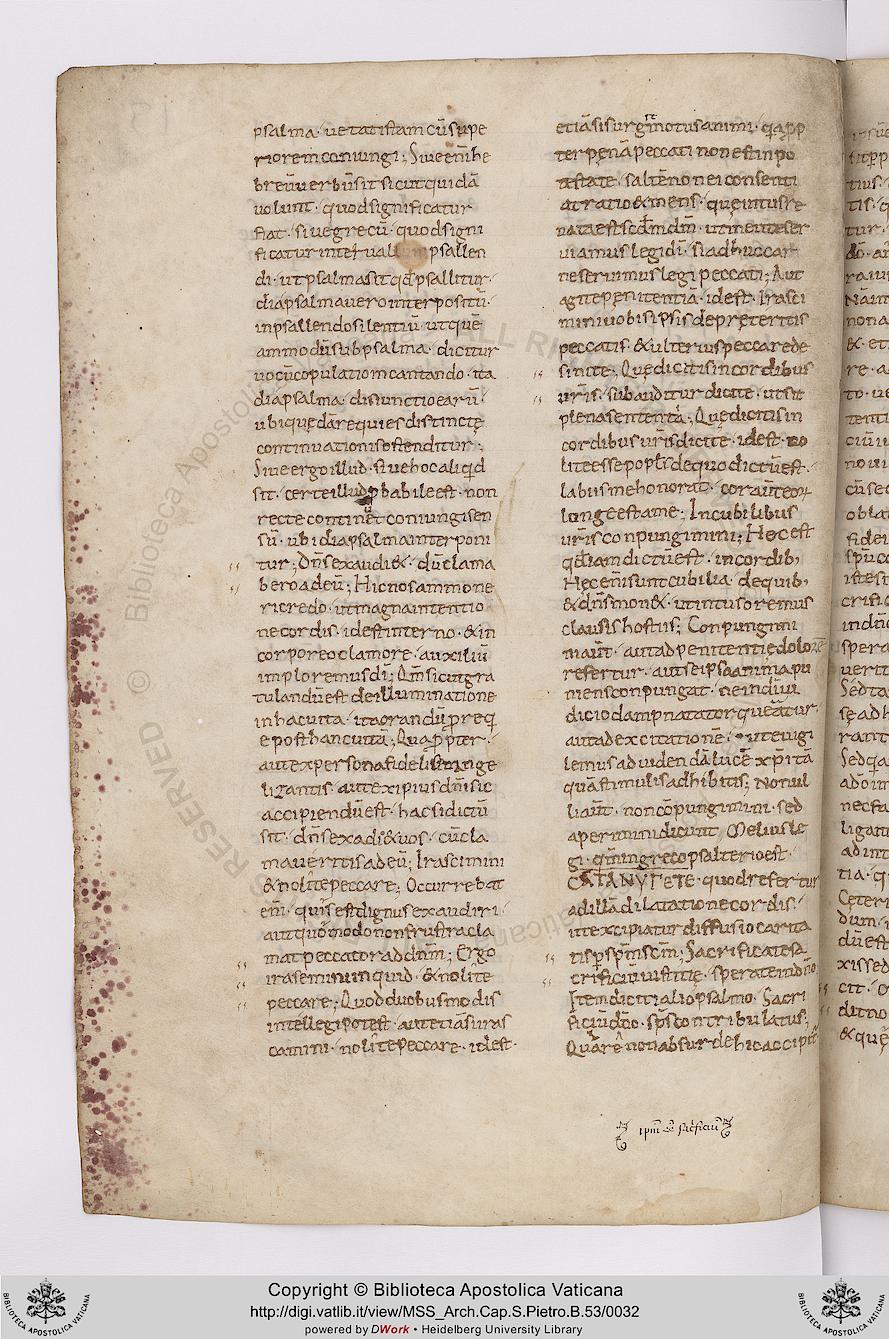 psalma· uetatistam cū supe
riorem coniungi; Siue enī he
breū uerbū sit sicut quidā
uolunt· quo significatur
fiat· siue grecū· quod signi
ficatur interuallum psallen
di· ut psalma sit qđ psallitur·
diapsalma uero interpositū
in psallendo silentiū ut quē
ammodū subpsalma· dicitur
uocū copulatio in cantando· ita
diapsalma· disiunctio earū·
ubi quędā requies distinctę
continuationis ostenditur·;
Siue ergo illud· siue hoc aliqđ
sit· certe illud ꝓbabile est· non
recte continuēt coniungi sen
sū· ubi diapsalma interponi
tur; Dn̄s exaudi&· dū clama
bero ad eū; Hic nos ammone
ri credo· ut magna intentio
ne cordis· idest interno· & in
corporeo clamore· auxiliū
imploremus dī; Qm̄ sicut gra
tulandū est de illuminatione
in hac uita· ita orandū pro requi
e post hanc uitā; Quapropter·
aut ex persona fidelis euange
lizantis· aut ex ipius dn̄i sic
accipiendū est· hac si dictū
sit· dn̄s exadi& uos· cū cla
maueritis ad eū; Irascimini
& nolite peccare; Occurrebat
enī· quis est dignus exaudiri·
aut quomodo non frustra cla
mat peccator ad dn̄m; Ergo
irasemini inquid· & nolite
peccare; Quod duobus modis
intellegi potest· aut etiā si iras
camini· nolite peccare· idest·
etiā si surgm̄ motus animi· qui app
ter pęnā peccati non est in po
testate· saltē non ei consenti
at ratio & mens· que intus re
nata est scd̄m dm̄· ut mente ser
uiamus legi dī· si adhuc car
ne seruimus legi peccati; Aut
agite penitentiā· idest· irasci
mini uobis ipsis de pręteritis
peccatis· & ulterius peccare de
sinite; Que dicitis in cordibus
uris· subauditur dicite· ut sit
plena sententia; Quę dicitis in
cordibus uris dicite· idest· no
lite esse popl's de quo dictū est·
labus me honorat· cor aut eoꝝ
longe est a me; In cubilibus
uris conpungimini; Hoc est
qđ iam dictū est· in cordib;
Hęc enī sunt cubilia· de quib;
& dn̄s mon&· ut intus oremus
clausis hostiis; Conpungimi
ni aut· aut ad penitentię dolorē
refertur· aut se ipsa anima pu
niens conpungat· ne in diui
dicio dampnata torqueatur
aut ad excitationē· ut euigi
lemus ad uidendā lucē xp̄i ita
quā stimulis adhibitis; Nonul
li aut· non cōpungimini· sed
aperimini dicunt· Melius le
gi· qm̄ in greco psalterio est·
CATANYΓETE· quod refertur
ad illā dilatatione cordis·
ut excipiatur diffusio carita
tis per sp̄m scm̄; Sacrificate sa
crificiū iustitię· sperate in dn̄o
Item dicit i alio psalmo· Sacri
ficiū dō· sp̄s contribulatus;
Quare non absurde hic accipit
ipm̄ ee sacrificiū
Copyright © Biblioteca Apostolica Vaticana
http://digi.vatlib.it/view/MSS_Arch.Cap.S.Pietro.B.53/0032
powered by DWork • Heidelberg University Library